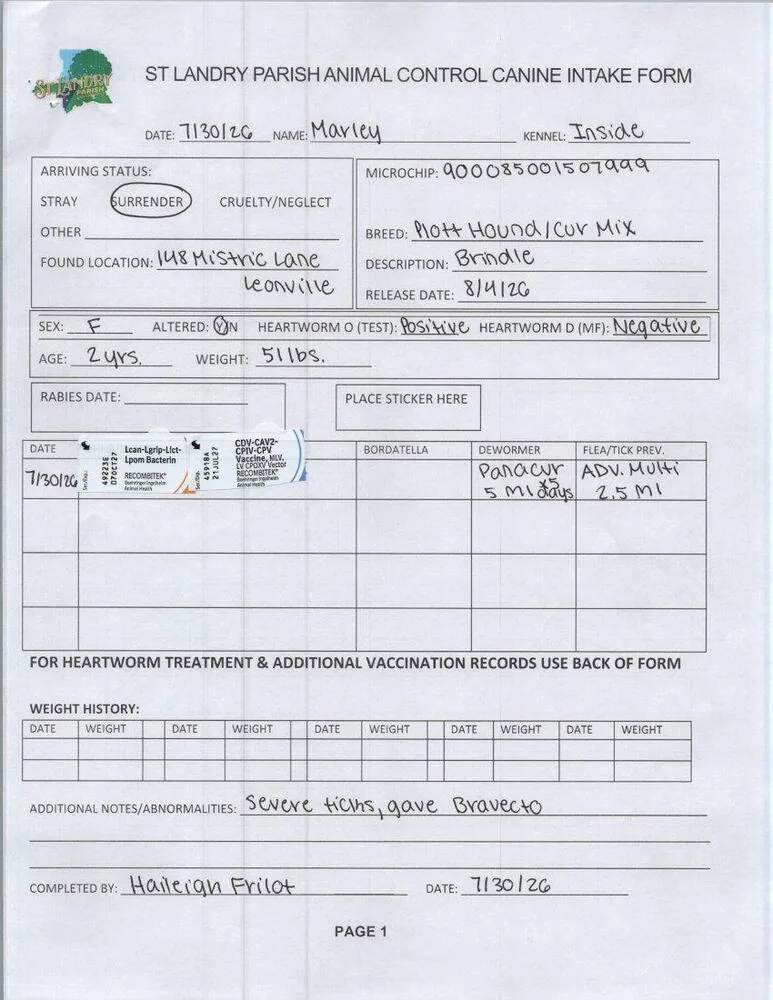 ST LANDRY
PARISH
ST LANDRY PARISH ANIMAL CONTROL CANINE INTAKE FORM
DATE: 7/30/26 NAME: Marley KENNEL: Inside
ARRIVING STATUS:
STRAY SURRENDER CRUELTY/NEGLECT
OTHER
FOUND LOCATION: 148 Mistric Lane
Leonville
MICROCHIP: 900085001507999
BREED: Plott Hound/Cur Mix
DESCRIPTION: Brindle
RELEASE DATE: 8/4/26
SEX: F ALTERED: Y/N HEARTWORM O (TEST): Positive HEARTWORM D (MF): Negative
AGE: 2 yrs. WEIGHT: 51 lbs.
RABIES DATE:
PLACE STICKER HERE
DATE BORDATELLA DEWORMER FLEA/TICK PREV.
7/30/26
49223E
07OCT27
Lcan-Lgrip-Lict-
Lpom Bacterin
RECOMBITEK®
Boehringer Ingelheim
Animal Health
45918A
21JUL27
CDV-CAV2-
CPIV-CPV
Vaccine, MLV,
LV CPOXV Vector
RECOMBITEK®
Boehringer Ingelheim
Animal Health
Panacur
5 Ml x5 days
ADV. Multi
2.5 Ml
FOR HEARTWORM TREATMENT & ADDITIONAL VACCINATION RECORDS USE BACK OF FORM
WEIGHT HISTORY:
DATE WEIGHT DATE WEIGHT DATE WEIGHT DATE WEIGHT DATE WEIGHT
ADDITIONAL NOTES/ABNORMALITIES: Severe ticks, gave Bravecto
COMPLETED BY: Haileigh Frilot DATE: 7/30/26
PAGE 1